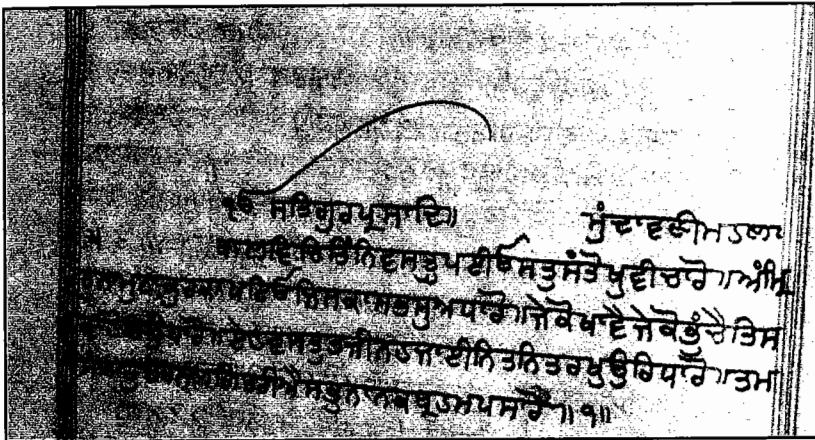 ੴ ਸਤਿਗੁਰਪ੍ਰਸਾਦਿ॥ ਮੁੰਦਾਵਣੀਮਹਲਾ੫
ਥਾਲਵਿਚਿਤਿੰਨਿਵਸਤੁਪਈਓਸਤੁਸੰਤੋਖੁਵੀਚਾਰੋ॥ਅੰਮ੍ਰਿ
ਠਾਕੁਰਕਾਪਇਓਜਿਸਕਾਸਭਸੁਅਧਾਰੋ॥ਜੇਕੋਖਾਵੈਜੇਕੋਭੁੰਚੈਤਿਸ
ਉਧਾਰੋ॥ਏਹਵਸਤੁਤਜੀਨਹਜਾਈਨਿਤਨਿਤਰਖੁਉਰਿਧਾਰੋ॥ਤਮ
ਚਰਨਲਗਿਤਰੀਐਸਭੁਨਾਨਕਬ੍ਰਹਮਪਸਾਰੋ॥੧॥